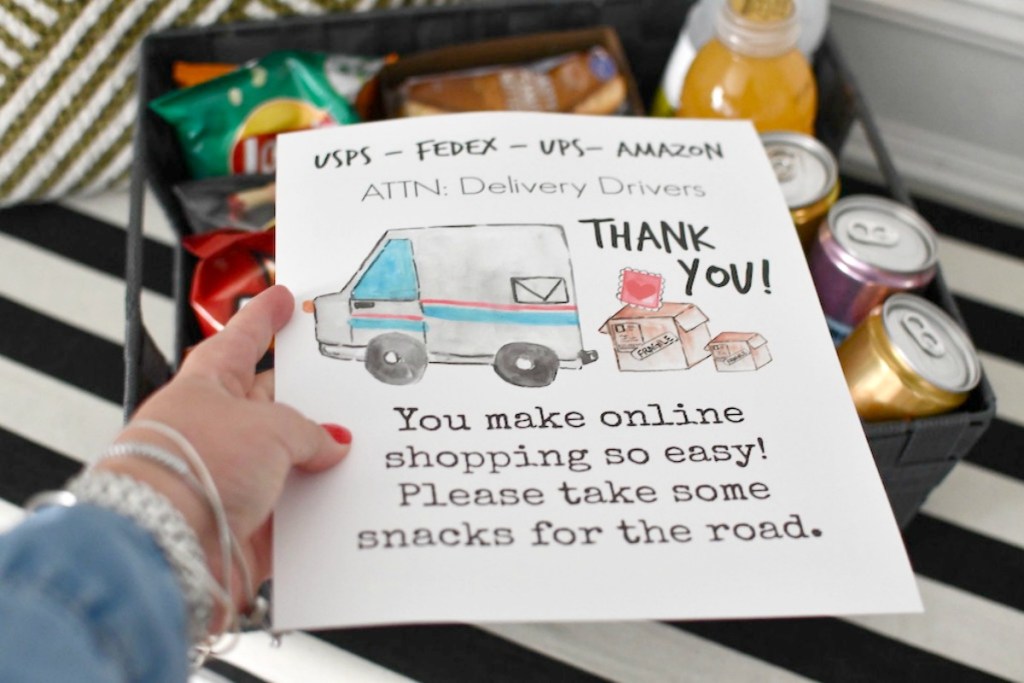 USPS – FEDEX – UPS – AMAZON
ATTN: Delivery Drivers
THANK
YOU!
FRAGILE
You make online
shopping so easy!
Please take some
snacks for the road.